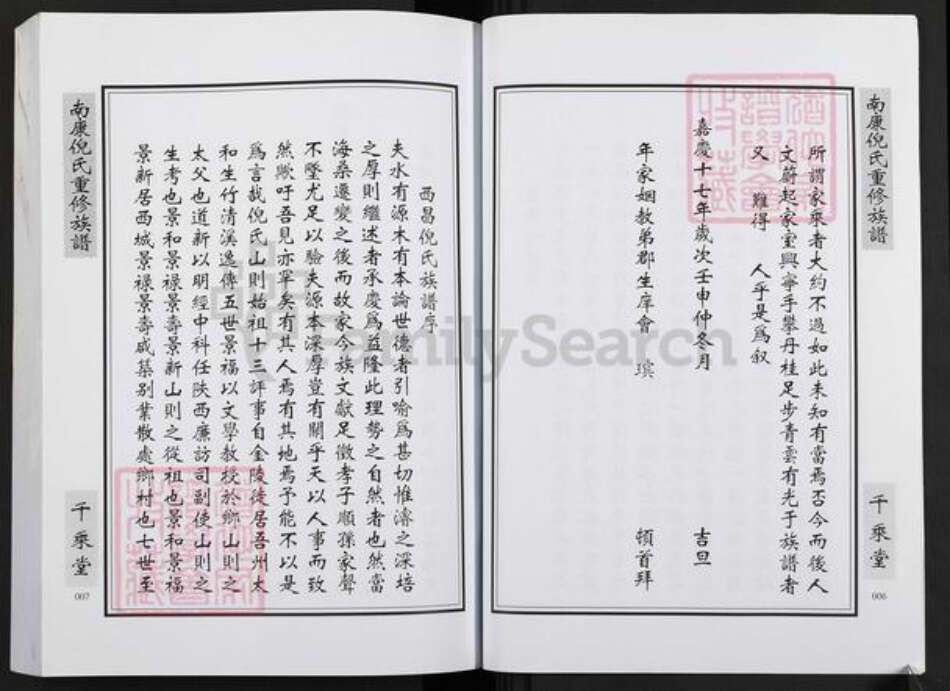 南康倪氏重修族譜
所謂家乘者大約不過如此未知有當焉否今而後人
文蔚起家室興寧手攀丹桂足步青雲有光于族譜者
又 難得 人乎是爲叙
嘉慶十七年歲次壬申仲冬月 吉旦
年家姻教弟郡生庠會 璸 頓首拜
千乘堂
006
西昌倪氏族譜序
夫水有源木有本論世德者引喻爲甚切惟濬之深培
之厚則繼述者承慶爲益隆此理勢之自然者也然當
海桑遷變之後而故家今族文獻足徵孝子順孫家聲
不墜尤足以驗夫源本深厚豈有關乎天以人事而致
然歟吁吾見亦罕矣有其人焉有其地焉予能不以是
爲言哉倪氏山則始祖十三評事自金陵徙居吾州太
和生竹清溪逸傳五世景福以文學教授於鄉山則之
太父也道新以明經中科任陝西廉訪司副使山則之
生考也景和景祿景壽景新山則之從祖也景和景福
景新居西城景祿景壽咸築别業散處鄉村也七世至
南康倪氏重修族譜
千乘堂
007
FamilySearch